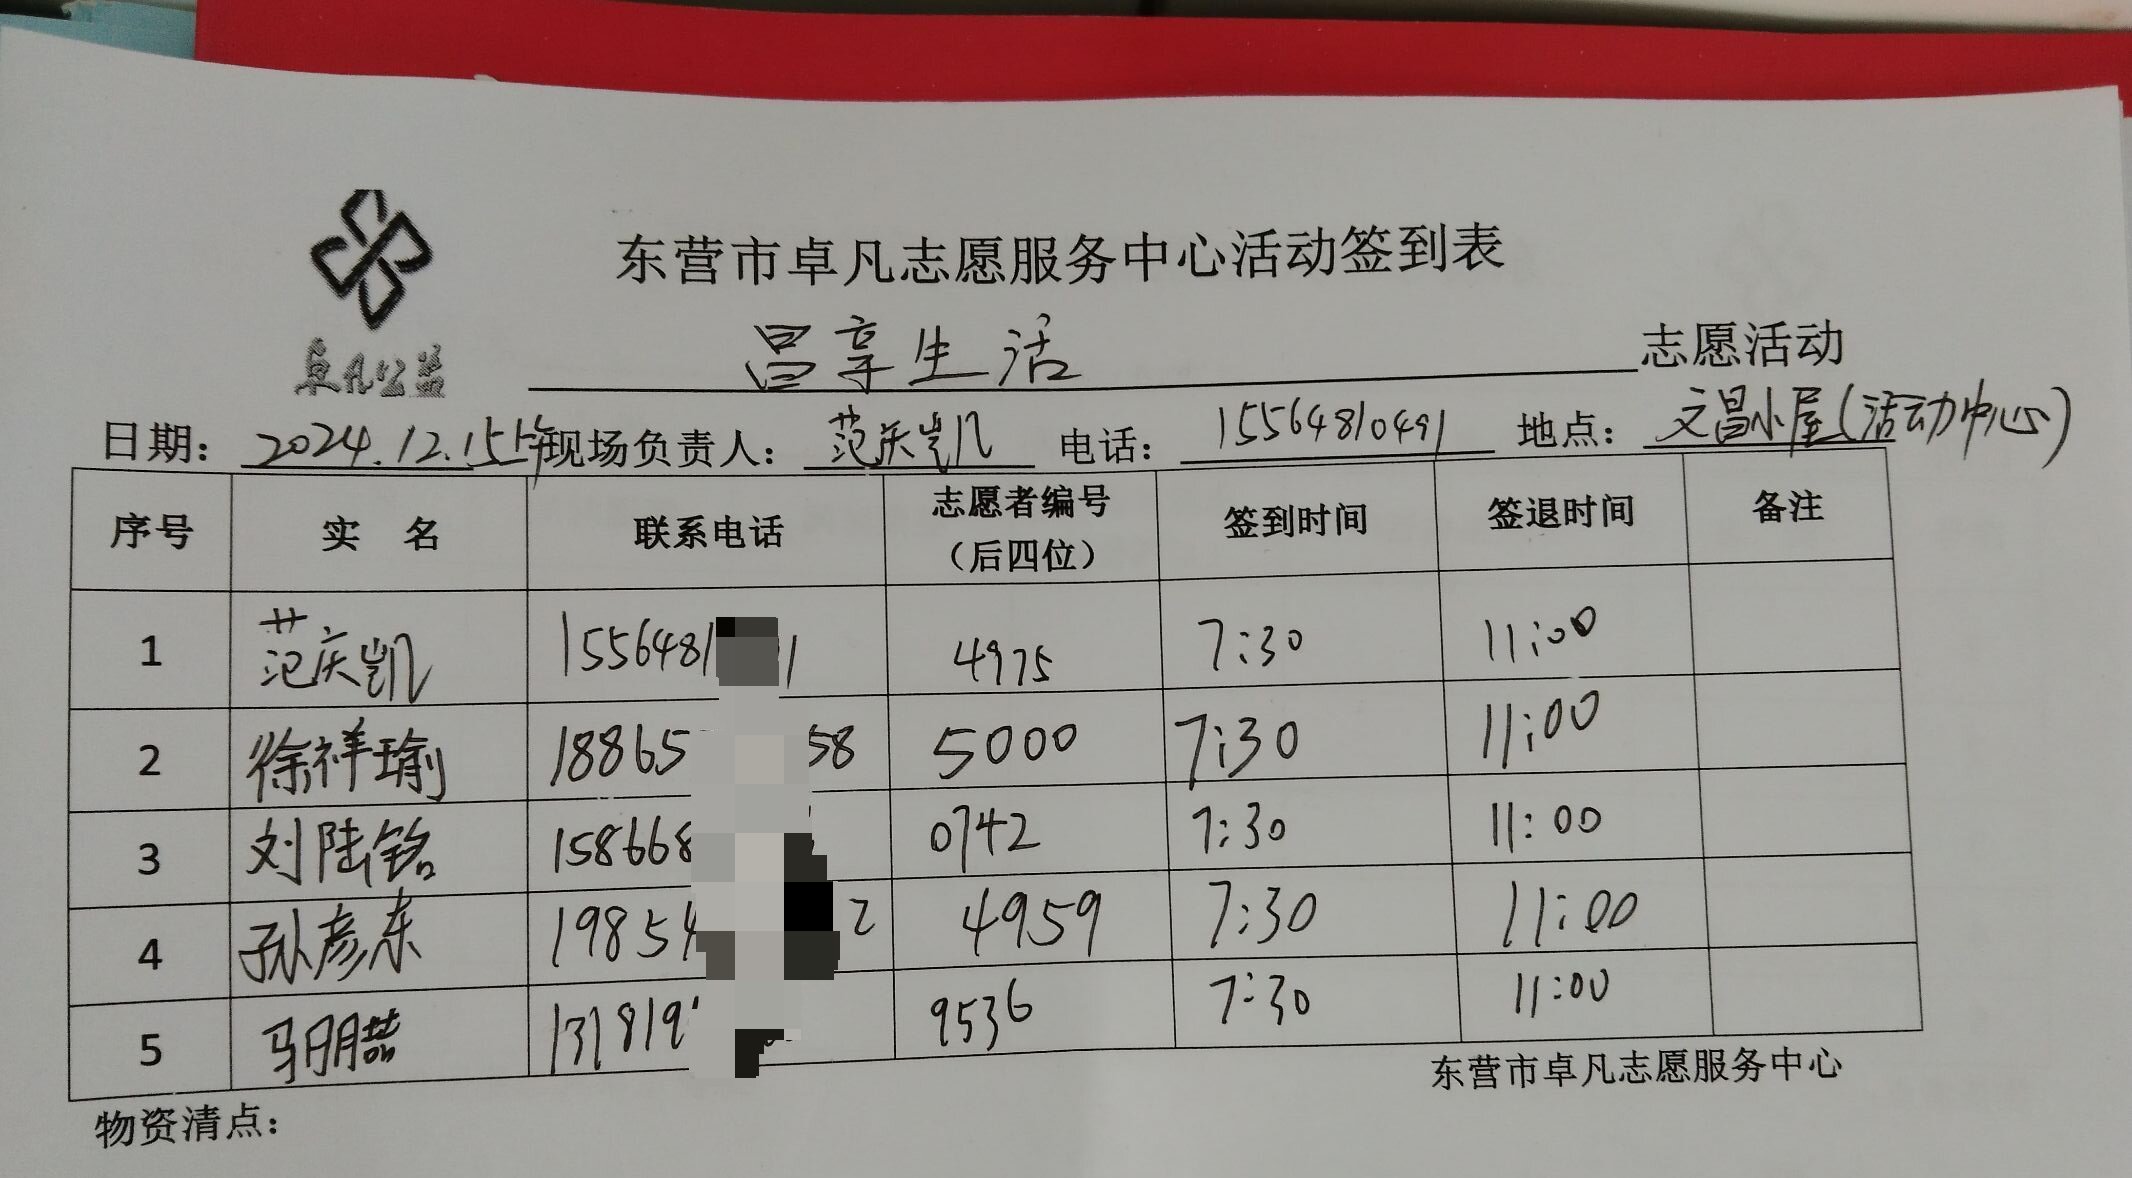 东营市卓凡志愿服务中心活动签到表
卓凡公益
昌享生活 志愿活动
日期：2024.12.15上午 现场负责人：范庆凯 电话：15564810491 地点：文昌小屋(活动中心)
序号 实 名 联系电话 志愿者编号（后四位） 签到时间 签退时间 备注
1 范庆凯 1556481 1 4975 7:30 11:00
2 徐祥瑜 18865 58 5000 7:30 11:00
3 刘陆铭 158668 0742 7:30 11:00
4 孙彦东 19854 2 4959 7:30 11:00
5 马朋喆 131819 9536 7:30 11:00
东营市卓凡志愿服务中心
物资清点：